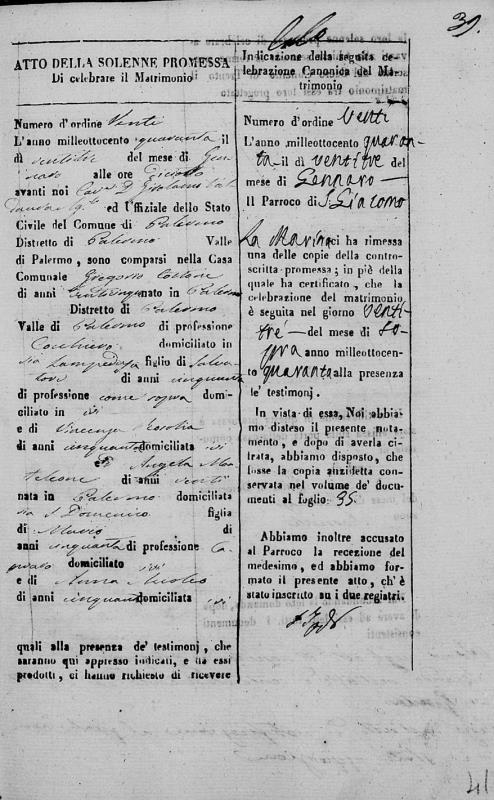 39.
ATTO DELLA SOLENNE PROMESSA
Di celebrare il Matrimonio
Numero d'ordine Venti
L'anno milleottocento quaranta il
dì ventitre del mese di Gen
naro alle ore
avanti noi Cav. D. Girolamo
ed Uffiziale dello Stato
Civile del Comune di Palermo
Distretto di Palermo Valle
di Palermo, sono comparsi nella Casa
Comunale Gregorio
di anni nato in Palermo
Distretto di Palermo
Valle di Palermo di professione
Cocchiere domiciliato in
via Lampedusa figlio di Salva
tore di anni cinquanta
di professione come sopra domi-
ciliato in ivi
e di Vincenza Rosolia
di anni cinquanta domiciliata ivi
Ed Angela Mon
teleone di anni venti
nata in Palermo domiciliata
via S. Domenico figlia
di di
anni cinquanta di professione
domiciliato ivi
e di Anna
di anni cinquanta domiciliata ivi
quali alla presenza de' testimonj, che
saranno qui appresso indicati, e da essi
prodotti, ci hanno richiesto di ricevere
Indicazione della seguita ce-
lebrazione Canonica del Ma-
trimonio
Numero d'ordine Venti
L'anno milleottocento quaran-
ta il dì ventitre del
mese di Gennaro
Il Parroco di S. Giacomo
La Marina ci ha rimessa
una delle copie della contro-
scritta promessa; in piè della
quale ha certificato, che la
celebrazione del matrimonio
è seguita nel giorno venti-
tré del mese di so-
pra anno milleottocen-
to quaranta alla presenza
de' testimonj.
In vista di essa, Noi abbia-
mo disteso il presente notа-
mento, e dopo di averla ci-
frata, abbiamo disposto, che
fosse la copia anzidetta con-
servata nel volume de' docu-
menti al foglio 35
Abbiamo inoltre accusato
al Parroco la recezione del
medesimo, ed abbiamo for-
mato il presente atto, ch'è
stato inscritto su i due registri.
41